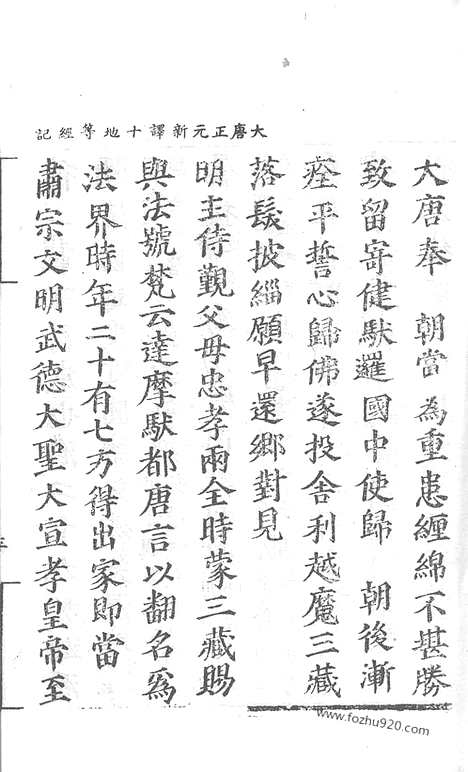 大唐正元新譯十地等經記
大唐奉　朝當為重患纏綿不堪勝
致留寄健馱邏國中使歸　朝後漸
痊平誓心歸佛遂投舍利越魔三藏
落髮披緇願早還鄉對見
明主侍觀父母忠孝兩全時蒙三藏賜
與法號梵云達摩馱都唐言以翻名為
法界時年二十有七方得出家即當
肅宗文明武德大聖大宣孝皇帝至
www.fozhu920.com